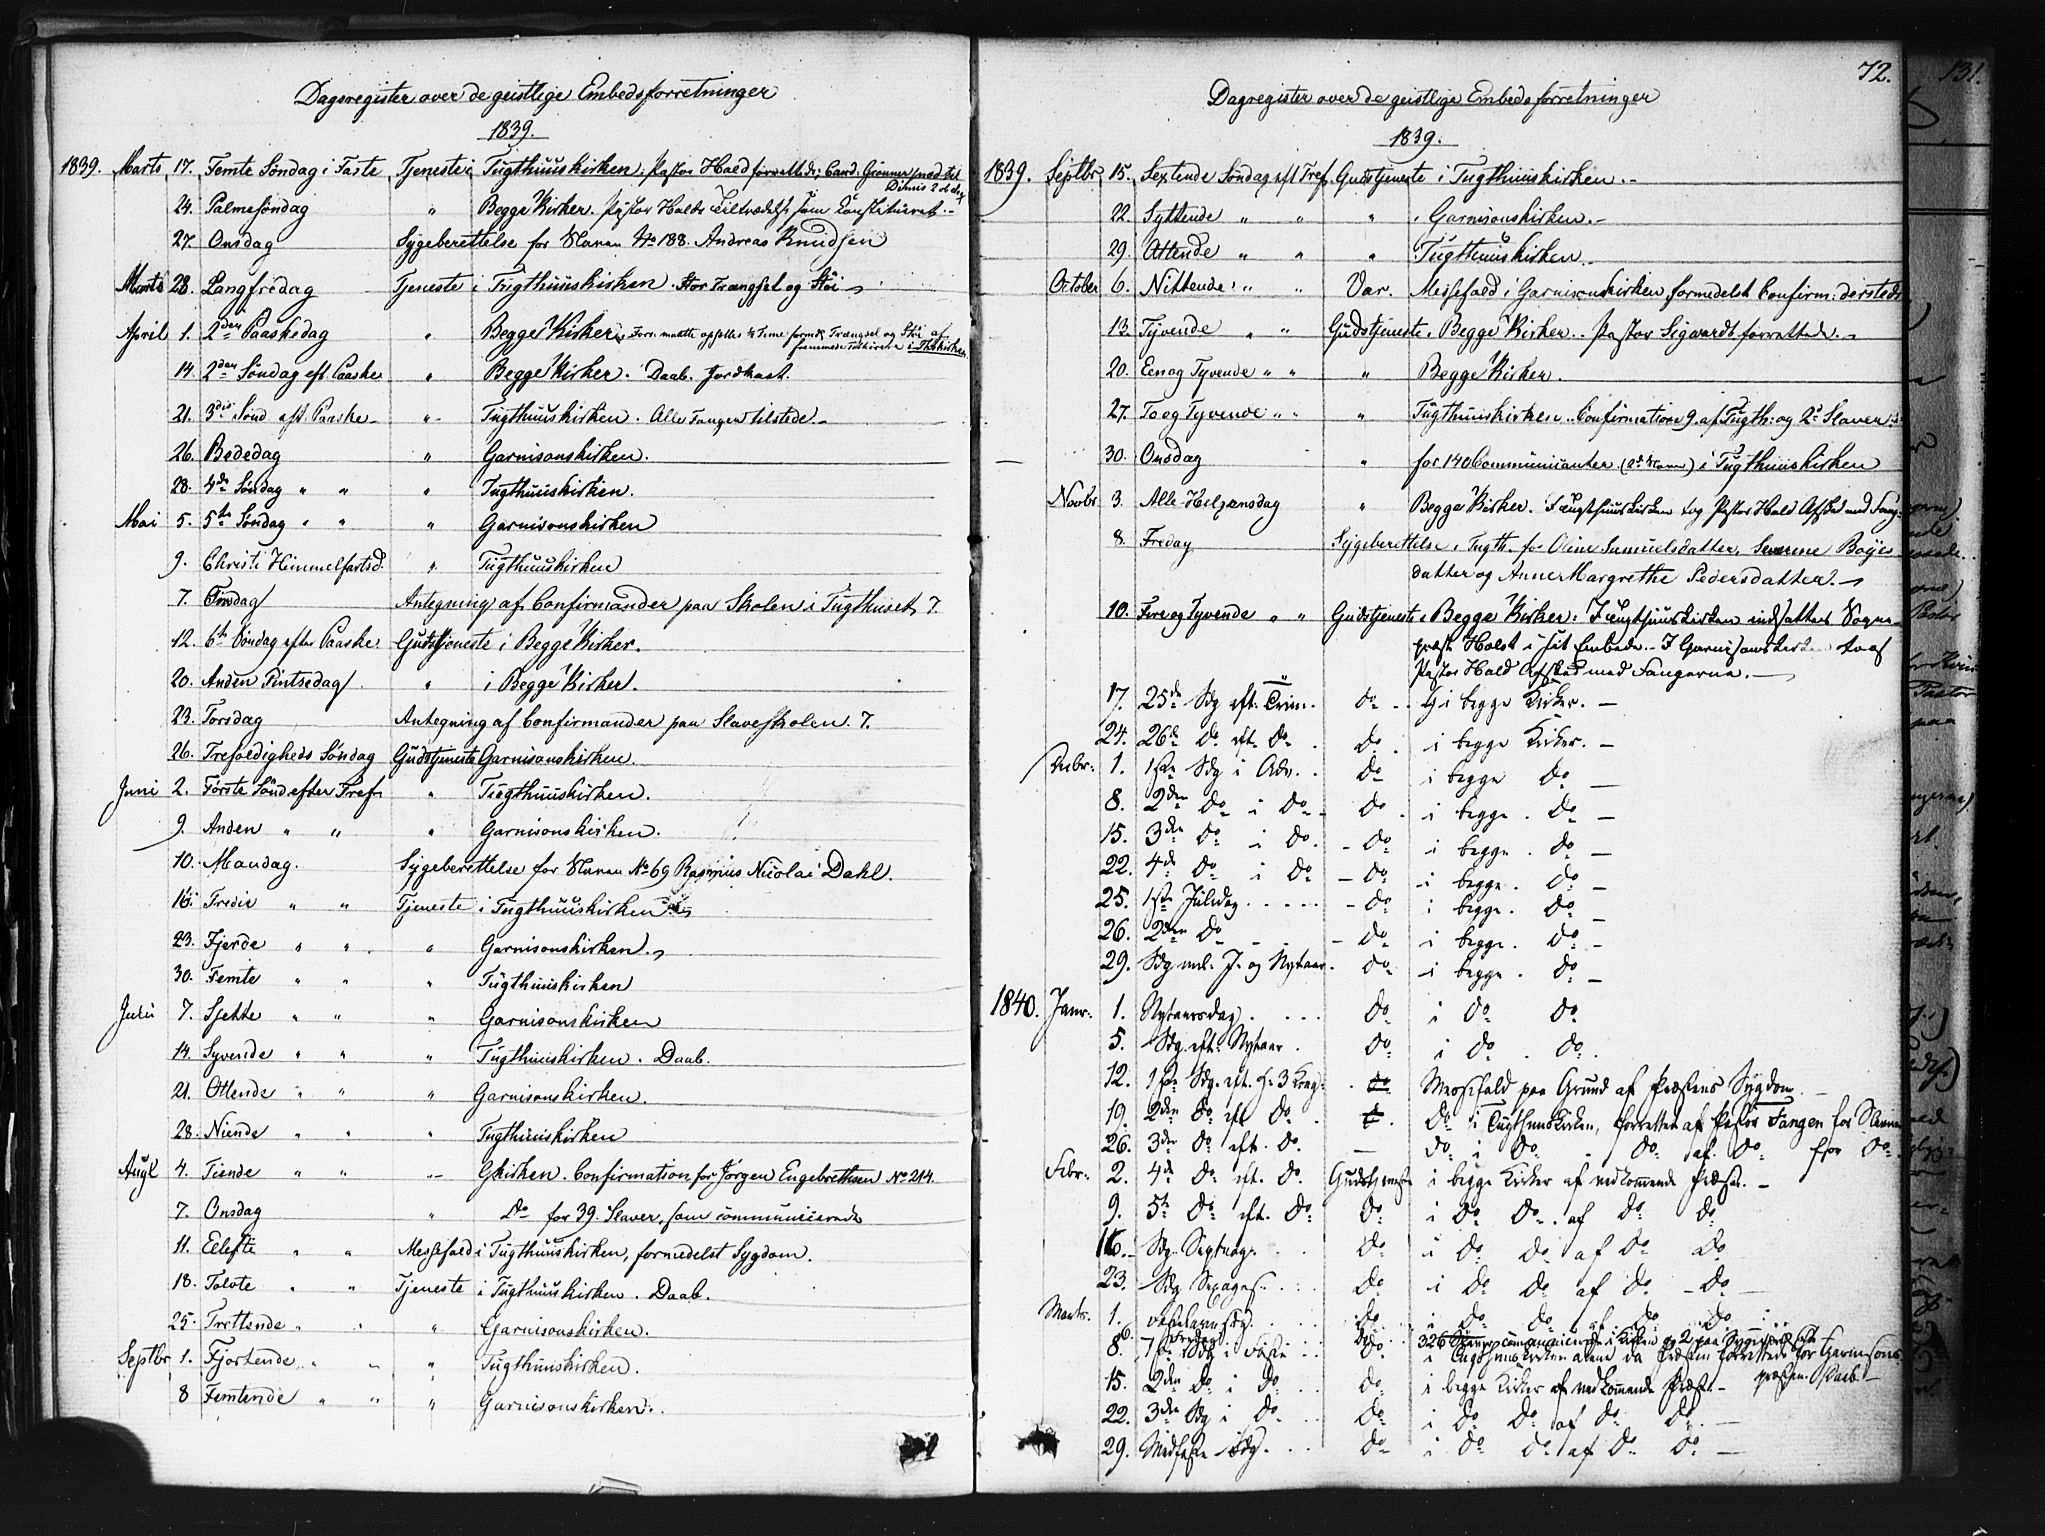 Dagsregister over de geistlige Embedsforretninger
1839.
1839. Marts 17. Femte Søndag i Faste Tjeneste i Tugthuuskirken. Pastor Hald forrettede; Cand. med til Dimis
24. Palmesøndag " Begge Kirker. Pastor Halds Tiltrædelse som Constitueret.
27. Onsdag Sygeberettelse for Slaven No 188. Andreas Knudsen
Marts 28. Langfredag Tjeneste i Tugthuuskirken. Stor Trængsel og Støi
April 1. 2den Paaskedag " Begge Kirker. Forr. maatte opsættes ½ Time formed. Trængsel og Støi af
fremmede Tilhørere i Thskirken
14. 2den Søndag eft Paaske " Begge Kirker. Daab. Jordkast.
21. 3die Sønd. eft. Paaske " Tugthuuskirken. Alle Fanger tilstede.
26. Bededag " Garnisonskirken.
28. 4de Søndag " " " Tugthuuskirken.
Mai 5. 5te Søndag " " " Garnisonskirken
9. Christi Himmelfartsd. " Tugthuuskirken
7. Antegning af Confirmander paa Skolen i Tugthuset 7.
12. 6te Søndag efter Paaske. Gudstjeneste i Begge Kirker.
20. Anden Pintsedag " i Begge Kirker.
23. Torsdag Antegning af Confirmander paa Slaveskolen. 7.
26. Trefoldigheds Søndag Gudstjeneste Garnisonskirken.
Juni 2. Første Sønd efter Tref. " Tugthuuskirken.
9. Anden " " " Garnisonskirken.
10. Mandag. Sygeberettelse for Slaven No 69 Rasmus Nicolai Dahl.
16. Tredie " " Tjeneste i Tugthuuskirken
23. Fjerde " " " Garnisonskirken.
30. Femte " " " Tugthuuskirken
Juli 7. Sjette " " " Garnisonskirken
14. Syvende " " " Tugthuuskirken. Daab.
21. Ottende " " " Garnisonskirken.
28. Niende " " " Tugthuuskirken
Augt 4. Tiende " " " Gkirken. Confirmation for Jørgen Engebrethsen No 214.
7. Onsdag " Do for 39. Slaver, som communicerede
11. Ellefte " " Messefald i Tugthuuskirken, formedelst Sygdom.
18. Tolvte " " Tjeneste i Tugthuuskirken. Daab.
25. Trettende " " " Garnisonskirken.
Septbr 1. Fjortende " " " Tugthuuskirken.
8 Femtende " " " Garnisonskirken.
72.
Dagsregister over de geistlige Embedsforretninger
1839.
1839. Septbr 15. Sextende Søndag eft Tref. Gudstjeneste i Tugthuuskirken.
22. Syttende " " " Garnisonskirken.
29. Attende " " " Tugthuuskirken.
October 6. Nittende " " Var. Messefald i Garnisonskirken formedelst Confirm: dersteds
13. Tyvende " " Gudstjeneste i Begge Kirker. Pastor Sigwardt forrettede.
20. Een og Tyvende " " " Begge Kirker.
27. To og Tyvende " " " Tugthuuskirken. Confirmation 9. af Tugth. og 2 Slaver
30. Onsdag " for 140 Communicanter i Tugthuuskirken
Novbr 3. Alle Helgensdag " Begge Kirker. I Tugthuuskirken tog Pastor Hald Afsked med Fang-
8. Fredag Sygeberettelse i Tugth. for Oline Samuelsdatter, Severine Boyes
datter og Anne Margrethe Pedersdatter.
10. Fire og Tyvende " " Gudstjeneste i Begge Kirker: I Tugthuuskirken indsattes Sogne-
præst Holst i sit Embede. I Garnisonskirken tog
Pastor Hald Afsked med Fangerne.
17. 25de Sdg eft. Trin. do G i begge Kirker.
24. 26de do eft. do do i begge Kirker.
Decbr. 1. 1ste Sdg i Adv. do i begge do
8. 2den do i do do i begge do
15. 3die do i do do i begge do
22. 4de do i do do i begge do
25. 1ste Juledag do i begge do
26. 2den do do i begge do
29. Sdg ml. J. og Nytaar do i begge do
1840. Janr. 1. Nytaarsdag do i do do
5. Sdg. eft. Nytaar do i do do
12. 1ste Sdg. eft. H. 3 Kong. do Messefald paa Grund af Præstens Sygdom
19. 2den do eft do do i Tugthuuskirken, forrettet af Pastor Fangen for Slaverne
26. 3die do eft. do do i do do af do for do
Febr. 2. 4de do eft. do Gudstjeneste i begge Kirker af vedkommende Præster.
9. 5te do eft. do do i do do af do do
16. Sdg Septuag. do i do do af do do
23. Sdg Sexages. do i do do af do do
Marts. 1. Fastelavnsdg. do i do do af do do
326 Slaver communicerede i Kirken og 2 paa
8. 1ste Sdg i Faste do i Tugthuuskirken alene da Præsten forrettede for Garnisons
præsten. Daab.
15. 2den do i do do i begge Kirker af vedkommende Præster
22. 3die Sdg i do do i do do af do do
29. Midfaste Sdg. do i do do af do do
131.